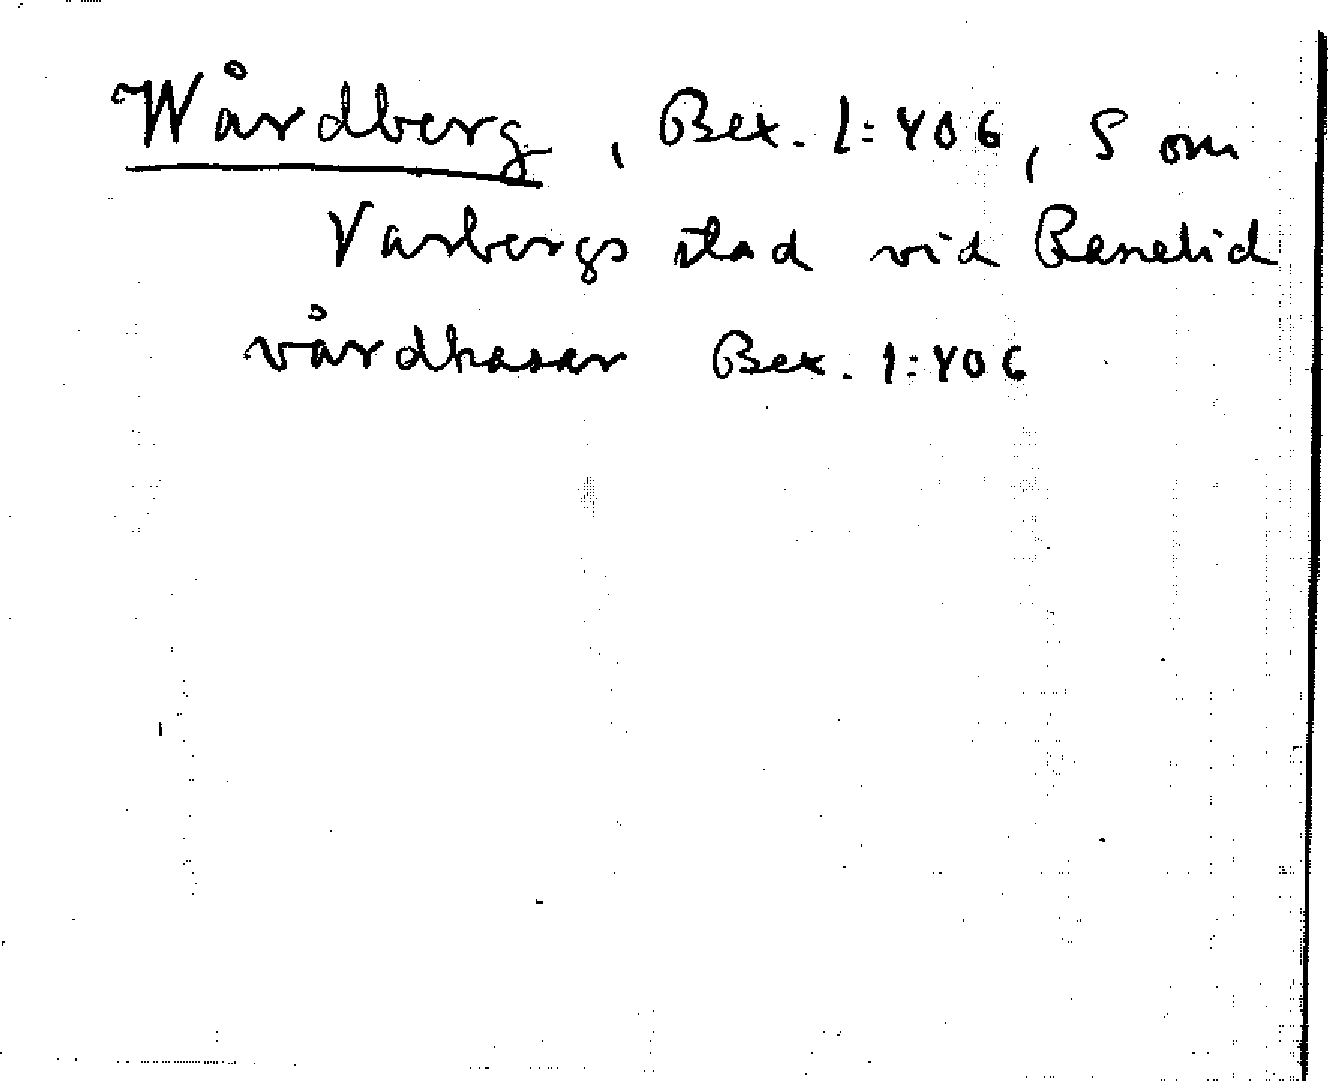 Wårdberg, Bex. 1:406, S om
Varbergs stad vid Ranelid
vårdkasar Bex. 1:406